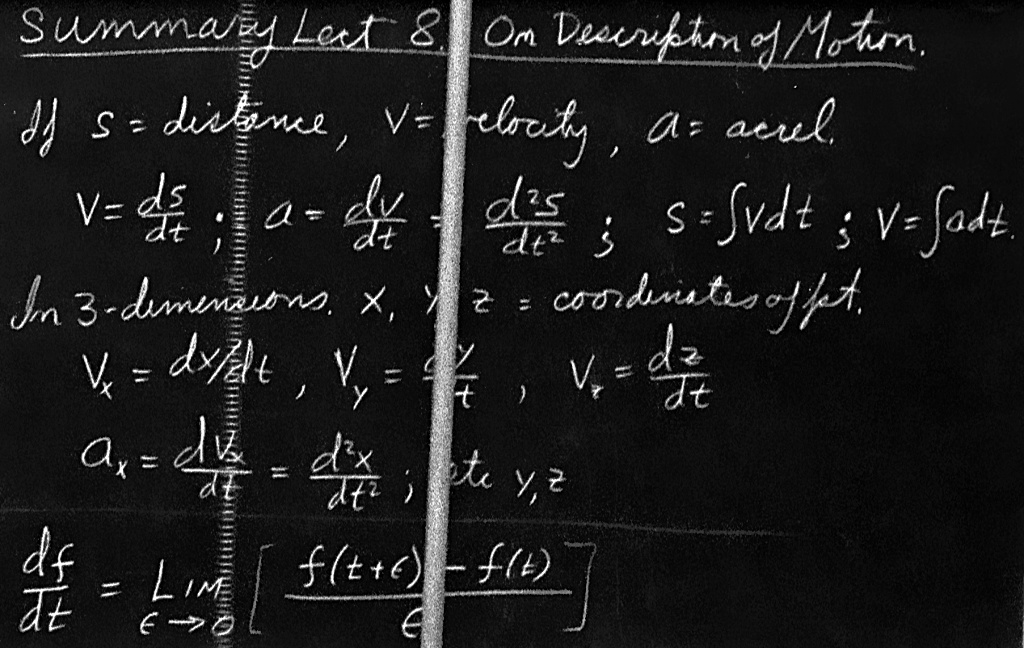 Summary Lect 8. On Description of Motion.
If s = distance, v = velocity, a = accel.
v = ds/dt ; a = dv/dt = d²s/dt² ; s = ∫vdt ; v = ∫adt.
In 3-dimensions. x, y z = coordinates of pt.
Vx = dx/dt , Vy = dy/dt , Vz = dz/dt
ax = dVx/dt = d²x/dt² ; etc y, z
df/dt = LIM ϵ→0 [ f(t+ϵ) - f(t) / ϵ ]